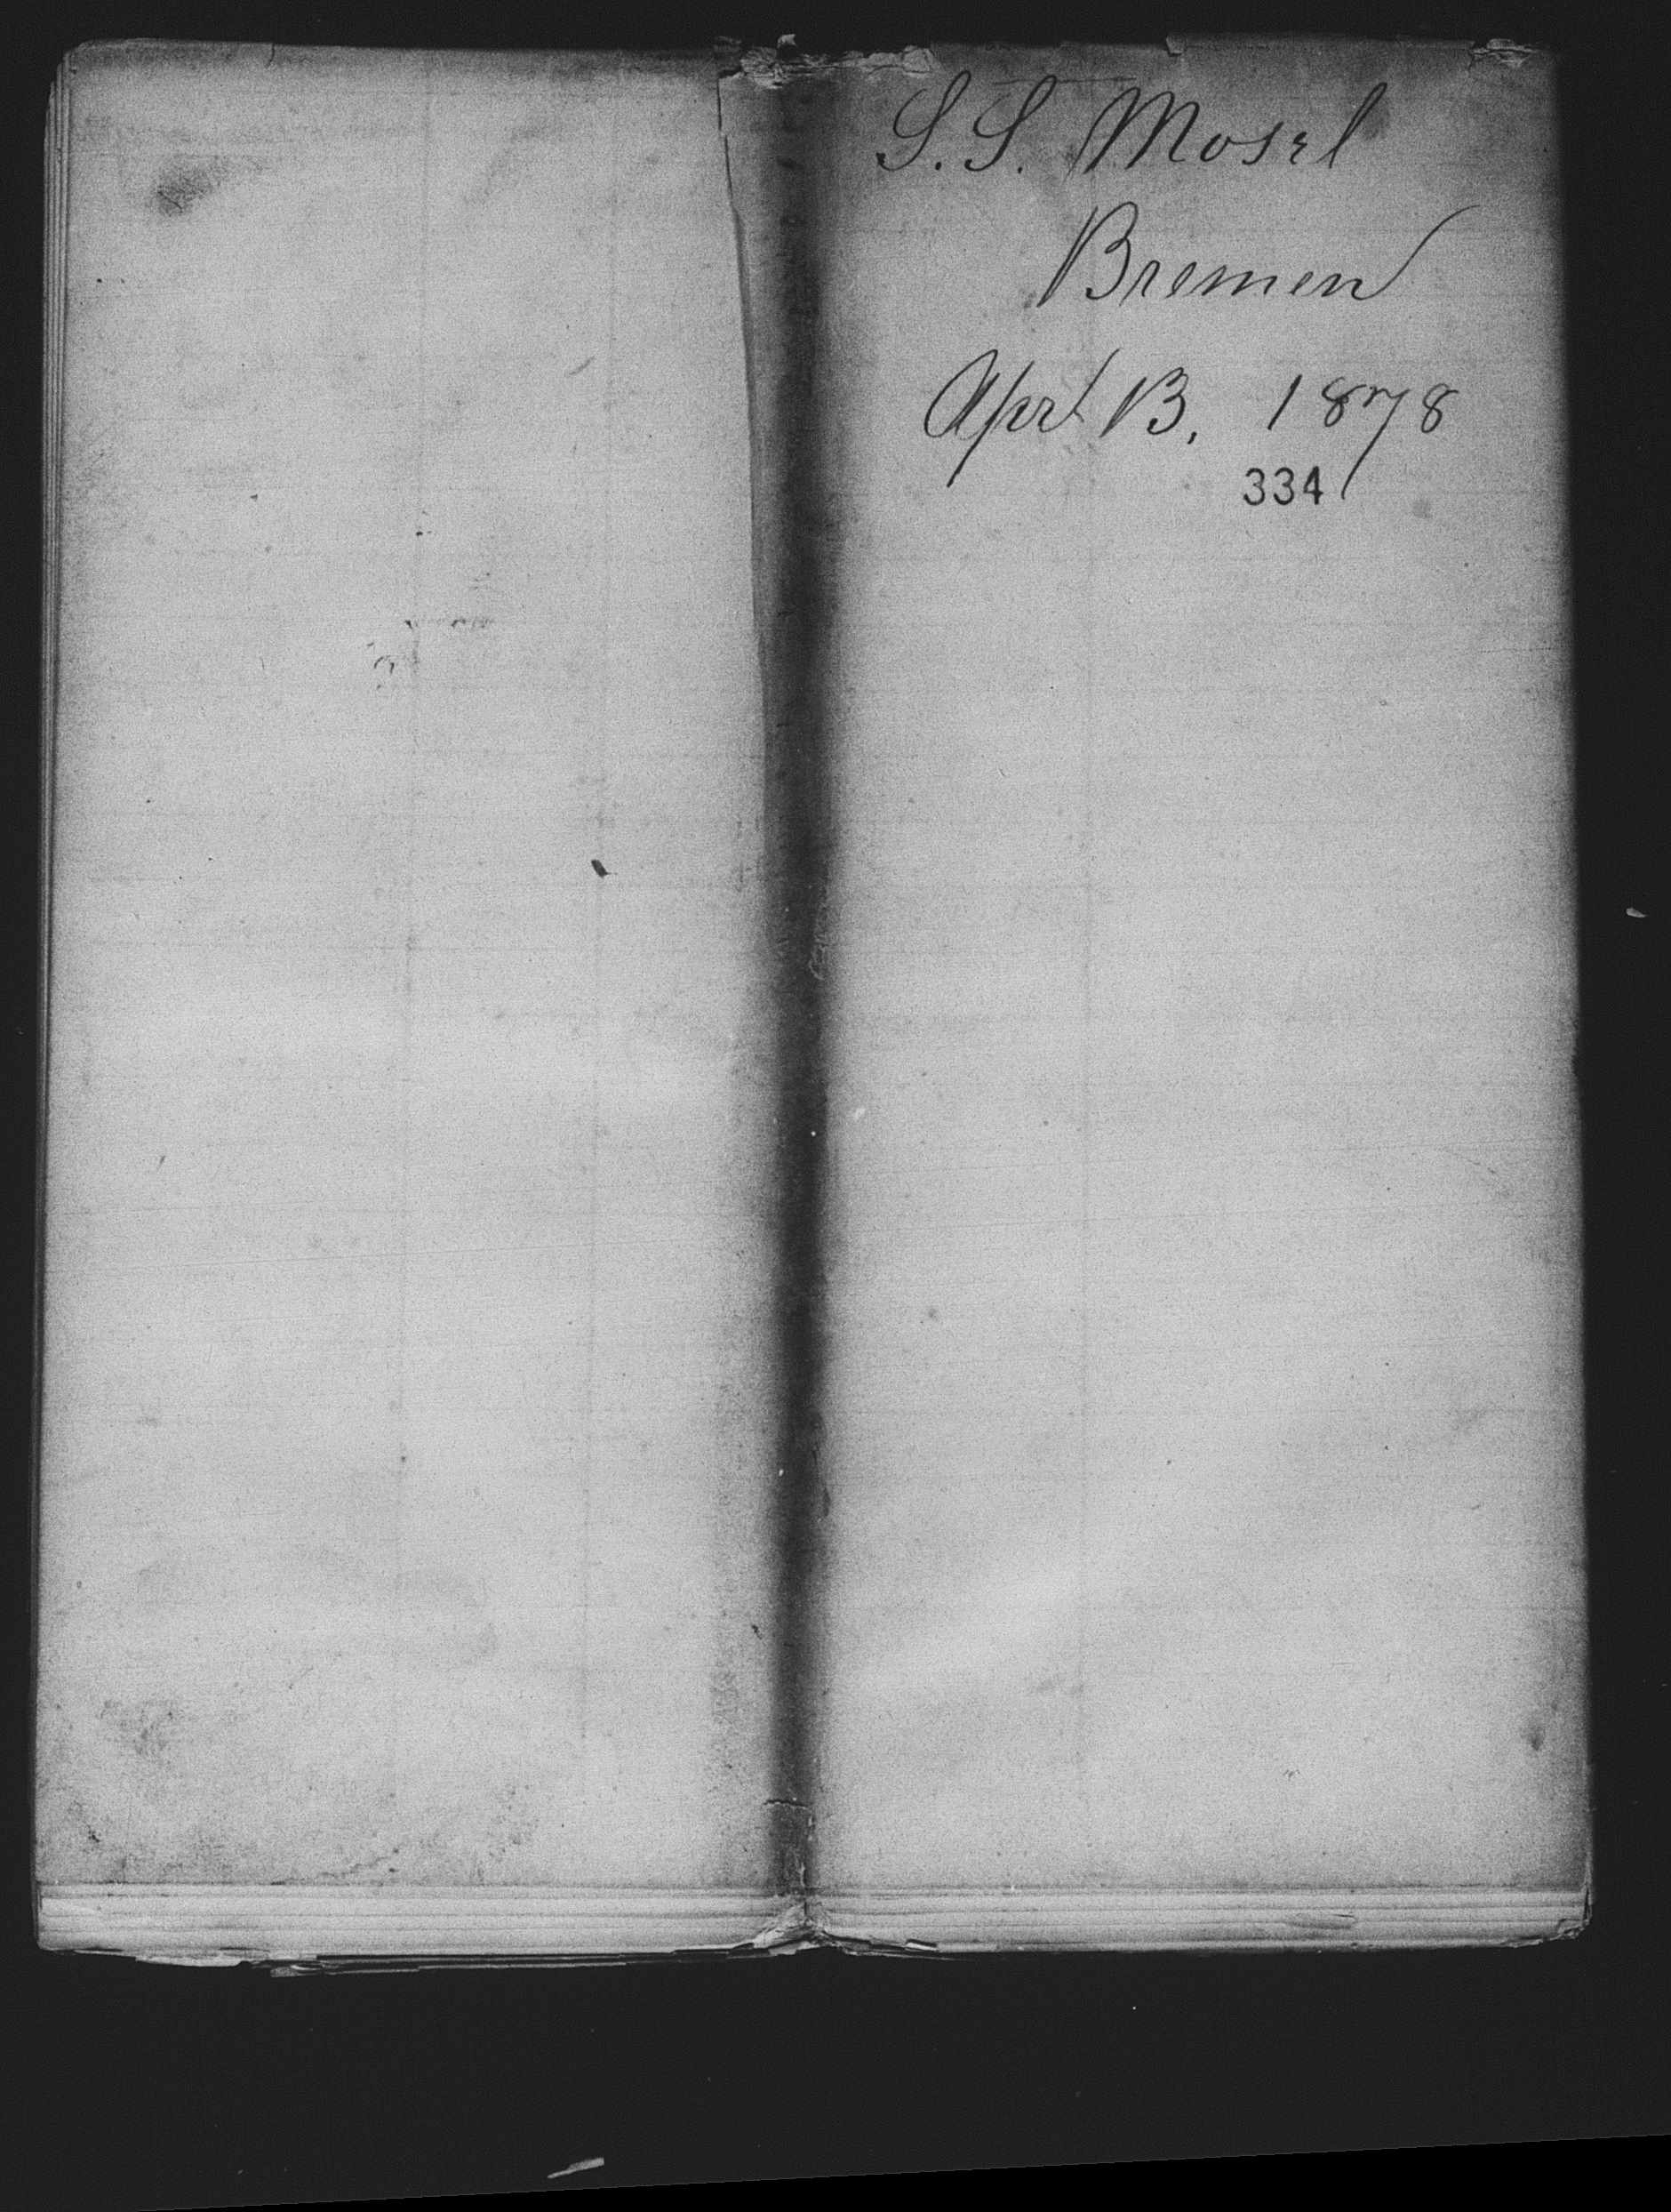 S.S. Mosel
Bremen
Apr 13, 1878
334